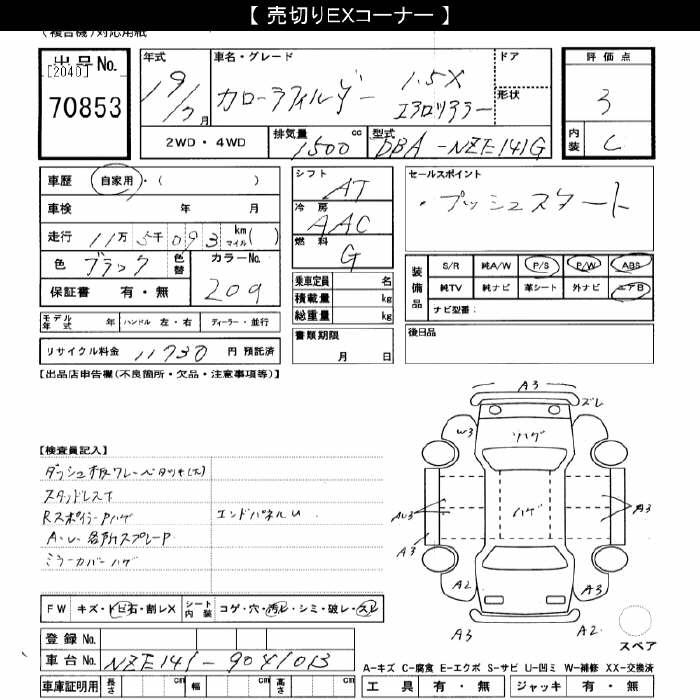 【 売切りEXコーナー 】
(複合機)対応用紙
出品No.
[2040]
70853
年式
19/7月
車名・グレード
カローラフィルダー 1.5X
エアロツアラー
ドア
形状
評価点
3
内装
C
2WD・4WD
排気量
1500 cc
型式
DBA-NZE141G
車歴 自家用・( )
車検 年 月
走行 11万5千093 km マイル( )
色 ブラック 色替
カラーNo.
209
保証書 有・無
シフト
AT
冷房
AAC
燃料
G
セールスポイント
・プッシュスタート
乗車定員 名
積載量 kg
総重量 kg
装備品
S/R 純A/W P/S P/W ABS
純TV 純ナビ 革シート 外ナビ エアB
ナビ型番:
モデル年式 年 ハンドル 左・右 ディーラー・並行
書類期限
月 日
後日品
リサイクル料金 11730 円 預託済
【出品店申告欄(不良箇所・欠品・注意事項等)】
【検査員記入】
スタッドレスT
RスポイラーPハゲ エンドパネルU
A・U・各所スプレーP
ミラーカバーハゲ
A3
ズレ
W3
ソハゲ
ハゲ
AU3
A3
A3
A2
A3
A3
A2
スペア
FW キズ・トビ石・割レX シート内装 コゲ・穴・汚レ・シミ・破レ・スレ
登録No.
車台No. NZE141-9041013
車庫証明用 長さ cm 幅 cm 高さ cm
A-キズ C-腐食 E-エクボ S-サビ U-凹ミ W-補修 XX-交換済
工具 有・無 ジャッキ 有・無